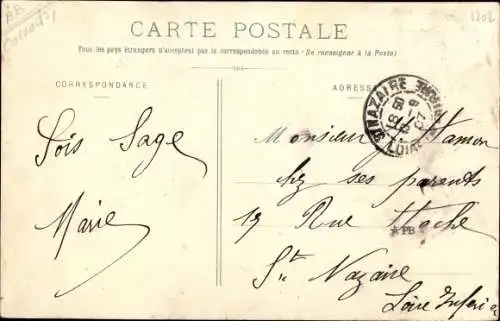 BB
1202
CARTE POSTALE
Tous les pays étrangers n'acceptent pas la correspondance au recto (Se renseigner à la Poste)
CORRESPONDANCE
ADRESSE
ST NAZAIRE
LOIRE
Sois Sage
Marie
Monsieur Hamon
chez ses parents
19 Rue Hoche
PB
St Nazaire
Loire Inferie